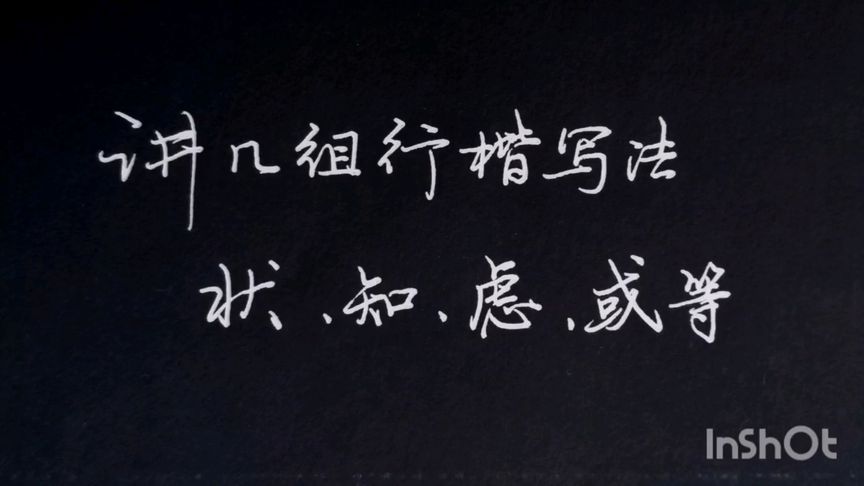 讲几组行楷写法
状、知、虑、或等
InShOt